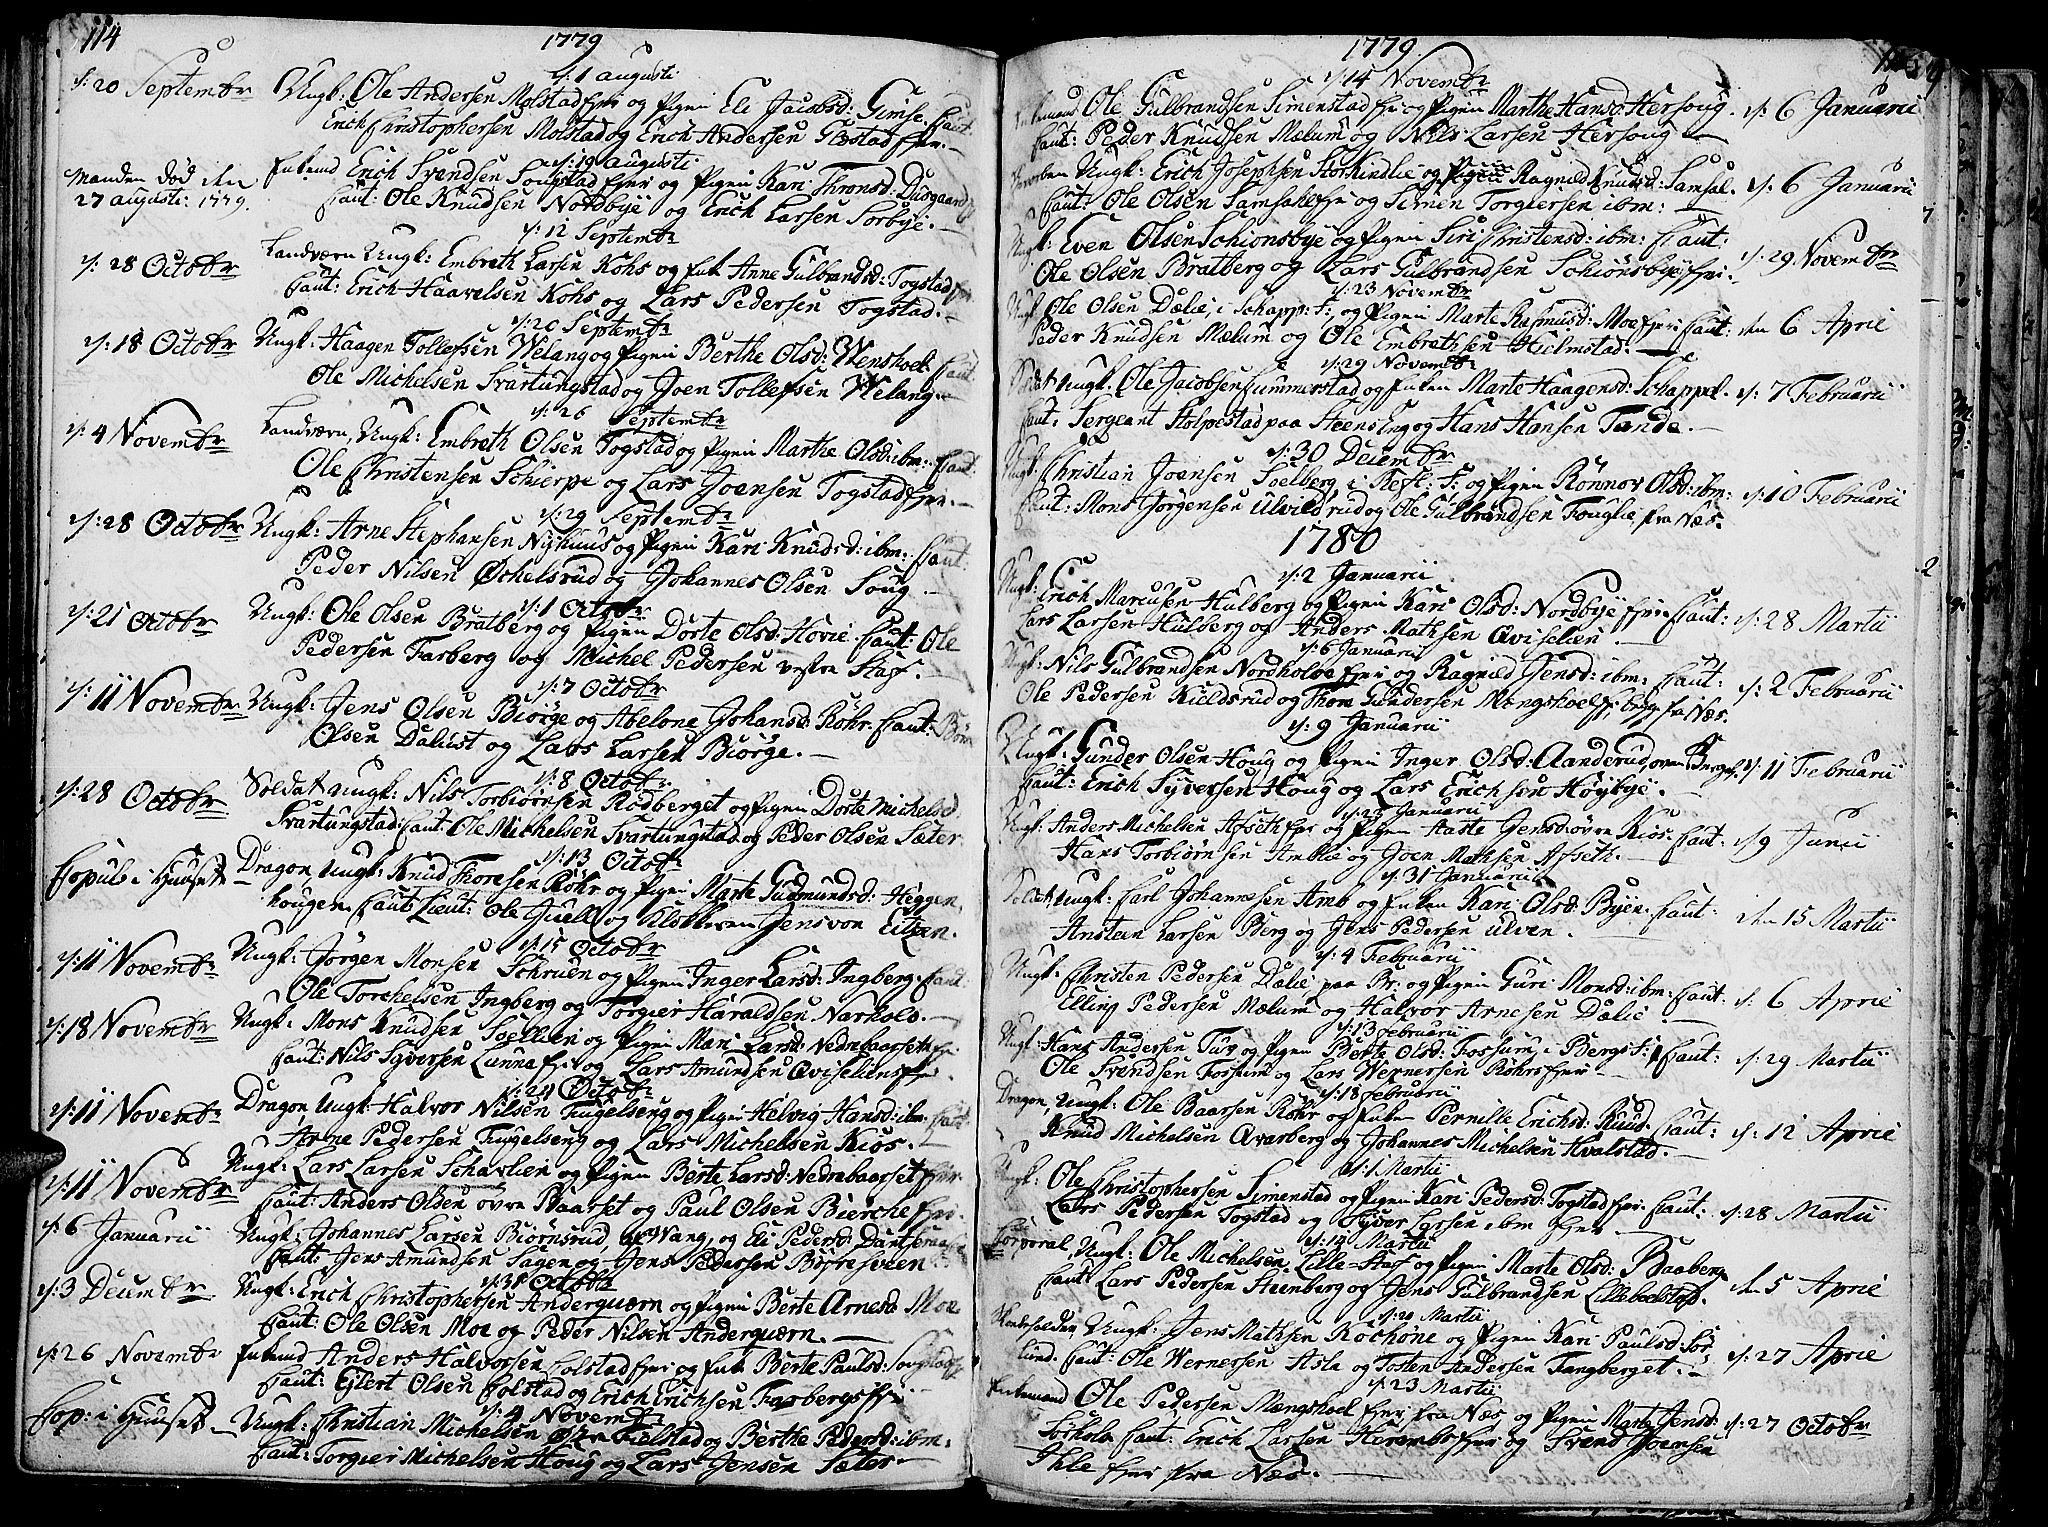 114
1779
d: 1 augusti
d: 20 Septembr
Ungk: Ole Andersen Molstad Ejer og Pigen Eli Jacobsd: Gimse. Caut:
Erich Christophersen Molstad og Erich Andersen Gostad Ejer. —
d: 19 augusti
Manden død den
27 augusti: 1779.
Enkemd Erich Svendsen Songstad Ejer og Pigen Kari Thronsd: Diisgaard
Caut: Ole Knudsen Nordbye og Erich Larsen Sorbye. —
d: 12 Septembr
d: 28 Octobr
Landværn Ungk: Embreth Larsen Kohs og Enk Anne Gulbrandsd: Togstad
Caut: Erich Haavelsen Kohs og Lars Pedersen Togstad. —
d: 20 Septembr
d: 18 Octobr
Ungk: Haagen Tollefsen Welang og Pigen Berthe Olsd: Wensholt. Caut:
Ole Michelsen Svartungstad og Joen Tollefsen Welang. —
d: 26 Septembr
d: 4 Novembr
Landværn, Ungk: Embreth Olsen Togstad og Pigen Marthe Olsd: ibm: Caut:
Ole Christensen Schierpe og Lars Joensen Togstad Ejer. —
d: 29 Septembr
d: 28 Octobr
Ungk: Arne Stephansen Nyhuus og Pigen Kari Knudsd: ibm: Caut:
Peder Nilsen Øchelsrud og Johannes Olsen Soug. —
d: 1 Octobr
d: 21 Octobr
Ungk: Ole Olsen Bratberg og Pigen Dorte Olsd: Hovie: Caut: Ole
Pedersen Farberg og Michel Pedersen vestre Staf. —
d: 7 Octobr
d: 11 Novembr
Ungk: Jens Olsen Biørge og Abelone Johansd: Røhr. Caut:
Olsen Dalust og Lars Larsen Biørge. —
d: 8 Octobr
d: 28 Octobr
Soldat Ungk: Nils Torbiørnsen Rødberget og Pigen Dorte Michelsd
Svartungstad: Caut: Ole Michelsen Svartungstad og Peder Olsen Sæter
d: 13 Octobr
Copule: i Huuset
Dragon Ungk: Knud Thoresen Røhr og Pigen Marte Gudmundsd: Heggen
hougen. Caut Lieut: Ole Juell og Klokkeren Jens von Eitzen.
d: 15 Octobr
d: 11 Novembr
Ungk: Jørgen Monsen Schruen og Pigen Inger Larsd: Ingberg. Caut:
Ole Torchelsen Ingberg og Torgier Haraldsen Narholo. —
d: 18 Novembr
Ungk: Mons Knudsen Soellien og Pigen Mari Larsd: Nedrebaarseth
Caut: Nils Syversen Lunna Ejer og Lars Amundsen Qviselien
d: 21 Octobr
d: 11 Novembr
Dragon Ungk: Halvor Nilsen Tingelseng og Pigen Helvig Hansd: ibm.
Arne Pedersen Tingelseng og Lars Michelsen Kiøs. —
d: 11 Novembr
Ungk: Lars Larsen Scharlien og Pigen Berte Larsd: Nedrebaarset Ejer.
Caut: Anders Olsen øvre Baarset og Paul Olsen Bierche Ejer.
d: 6 Januarii
Ungk: Johannes Larsen Biørnsrud, af Wang, og Eli Pedersd:
Caut: Jens Amundsen Sagen og Jens Pedersen Böfresveen
d: 31 Octobr
d: 3 Decembr
Ungk: Erich Christophersen Anderquærn og Pigen Berte Arnesd Moe
Caut: Ole Olsen Moe og Peder Nilsen Anderquærn. —
d: 26 Novembr
Enkemd Anders Halvorsen Colstad Ejer og Enk Berte Paulsd: Songstad
Caut: Ejlert Olsen Colstad og Erich Erichsen Farberg Ejer.
d: 4 Novembr
Cop: i Huuset —
Ungk: Christian Michelsen øvre Kielstad og Berthe Pedersd: ibm:
Caut: Torgier Michelsen Houg og Lars Jensen Sæter. —
1779.
d: 14 Novembr
Enkemand Ole Gulbrandsen Simenstad Ejer og Pigen Marthe Hansd: Hersoug.
d: 6 Januarii
Caut: Peder Knudsen Mælum og Nils Larsen Hersoug —
Ungk: Erich Josephsen Storkindlie og Pigen Ragnild Knudsd: Samsal.
d: 6 Januarii
Caut: Ole Olsen Samsal Ejer og Simen Torgiersen ibm: —
Ungk: Even Olsen Schionsbye og Pigen Siri Christensd: ibm: Caut:
d: 29 Novembr
Ole Olsen Bratberg og Lars Gulbrandsen Schiønsbye Ejer.
d: 23 Novembr
Ungk: Ole Olsen Dælie, i Schapp: S:, og Pigen Marte Rasmusd: Moe Ejer: Caut:
den 6 April
Peder Knudsen Mælum og Ole Embrethsen Hielmstad. —
d: 29 Novembr
Soldat Ungk. Ole Jacobsen Cummerstad og Enken Marte Haagensd: Schappel.
d: 7 Februarii
Caut: Sergeant Holpestad paa Steensing og Hans Hansen Tande. —
d: 30 Decembr
Ungk: Christian Joensen Soelberg i Næss: S: og Pigen Ronnov Olsd: ibm:
d: 10 Februarii
Caut: Mons Jørgensen Ulvildrud og Ole Gulbrandsen Fouglie, fra Næs.
1780
d: 2 Januarii
Ungk: Erich Marcusen Hulberg og Pigen Kari Olsd: Nordbye Ejer. Caut:
d: 28 Martii
Lars Larsen Hulberg og Anders Mathsen Qviselien. —
d: 6 Januarii
Ungk: Nils Gulbrandsen Nordholve Ejer og Ragnild Jensd: ibm: Caut:
d: 2 Februarii
Ole Pedersen Kieldsrud og Thore Gundersen Mengshoel, begge fra Næs.
d: 9 Januarii
Ungk: Gunder Olsen Houg og Pigen Inger Olsd: Aanderud,
d: 11 Februarii
Caut: Erich Syversen Houg og Lars Erichsen Høybye. —
d: 23 Januarii
Ungk: Anders Michelsen Afseth Ejer og Pigen Aaste Jensd: øvre Kiøs. Caut:
d: 9 Junii
Hans Torbiørnsen Amlie og Joen Mathsen Afseth. —
d: 31 Januarii
Soldat Ungk: Carl Johannesen Amb og Enken Kari Olsd: Byen. Caut:
den 15 Martii
Anstein Larsen Berg og Jens Pedersen Ulven. —
d: 4 Februarii
Ungk: Christen Pedersen Dælie paa Br: og Pigen Guri Monsd: ibm: Caut:
d: 6 April
Elling Pedersen Mælum og Halvor Arnesen Dælie.
d: 13 februarii
Ungk: Hans Andersen Tuv og Pigen Berte Olsd: Fossum, i Bergs S: Caut:
d: 29 Martii
Ole Svendsen Fossum og Lars Wernersen Røhrs Ejer —
d: 18 februarii
Dragon, Ungk: Ole Baarsen Røhr og Enken Pernille Erichsd: Ruud. Caut:
d: 12 April
Knud Michelsen Qvarberg og Johannes Michelsen Hvalstad. —
d: 1 Martii
Ungk: Ole Christophersen Simenstad og Pigen Kari Pedersd: Togstad Ejer. Caut:
d: 28 Martii
Lars Pedersen Togstad og Syver Larsen ibm Ejer —
d: 14 Martii
Corporal, Ungk: Ole Michelsen Lille-Staf og Pigen Marte Olsd: Baaberg
den 5 April
Caut Lars Pedersen Steenberg og Jens Gulbrandsen Lilleboelstad.
d: 20 Martii
Ungk: Jens Mathsen Kochone og Pigen Kari Paulsd: Sør
lund. Caut: Ole Wernersen Asla og Tosten Andersen Tangberget. —
d: 27 April
d: 23 Martii
Enkemand Ole Pedersen Mængshoel Ejer fra Næs og Pigen Marte Jensd:
d: 27 Octobr
Caut: Erich Larsen Herembs Ejer og Svend Joensen
Ihle Ejer fra Næs. —